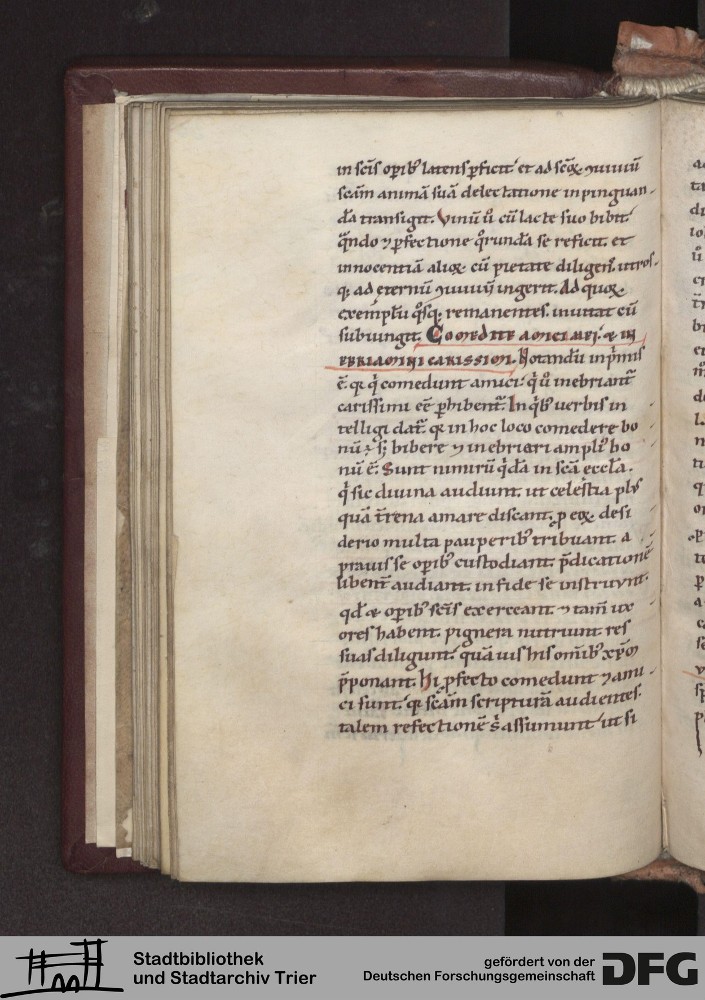 in scīs opib; latens pficit et ad scōꝝ ꝯuiuiū
scām animā suā delectatione inpinguan-
da transigit. Vinū ū cū lacte suo bibit
qndo ꝯpfectione qrunda se reficit. et
innocentiā alioꝝ cū pietate diligen. utros-
q; ad eternū ꝯuiuiū ingerit. Ad quoꝝ
exemplū qsq; remanentes. inuitat cū
subiungit. Comedite amici mei. & in
ebriamini carissimi. Notandū inpmis
ē. qꝛ qi comedunt amici. qi ū inebriant
carissimi eē phibent. In qb; uerbis in
telligi dat. qꝛ in hoc loco comedere bo
nū ē; bibere ⁊ inebriari ampli bo
nū ē. Sunt nimirū qda in scā eccla.
qi sic diuina audiunt. ut celestia pl
quā trena amare discant. p eoꝝ desi
derio multa pauperib; tribuant. a
prauis se opib; custodiant. pdicationē
libent audiant. in fide se instruunt.
qd & opib; scīs exerceant. ⁊ tam ux
ores habent. pignera nutriunt. res
suas diligunt. quā uis his omib; xpm
pponant. Hi pfecto comedunt ⁊ ami
ci sunt. qꝛ scām scripturā audientes.
talem refectionē s assumunt. ut si
Stadtbibliothek
und Stadtarchiv Trier
gefördert von der
Deutschen Forschungsgemeinschaft
DFG